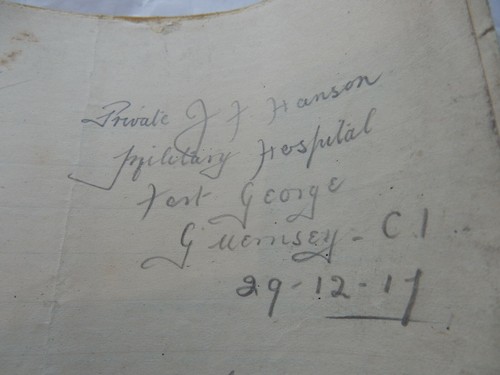 Private J F Hanson
Military Hospital
Fort George
Guernsey - C I
29-12-17